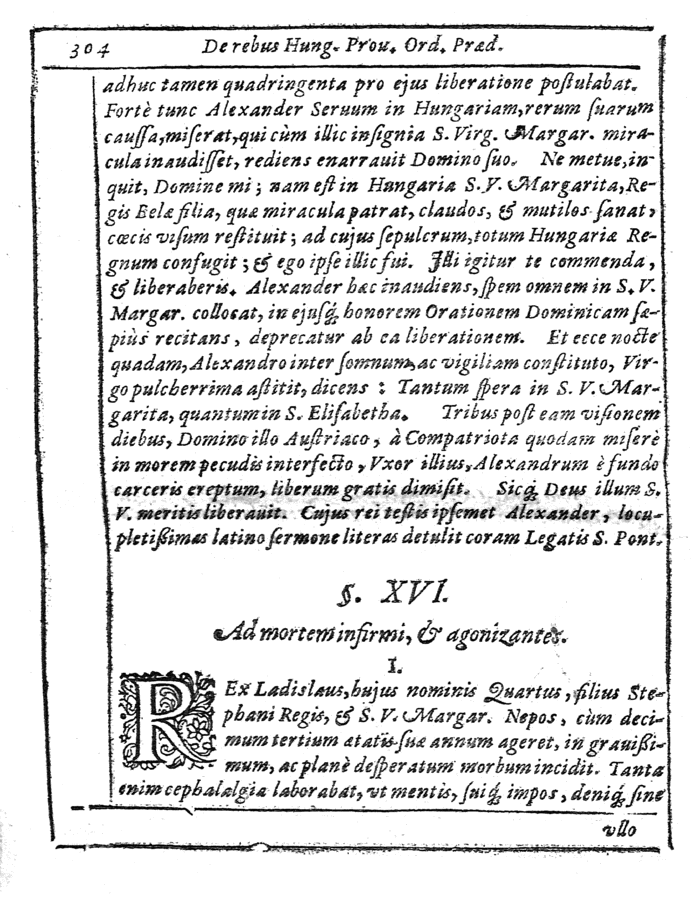 304 De rebus Hung. Prou. Ord. Præd.
adhuc tamen quadringenta pro ejus liberatione poſtulabat.
Fortè tunc Alexander Seruum in Hungariam, rerum ſuarum
cauſſa, miſerat, qui cùm illic inſignia S. Virg. Margar. mira-
cula inaudiſſet, rediens enarrauit Domino ſuo. Ne metue, in-
quit, Domine mi; nam eſt in Hungaria S. V. Margarita, Re-
gis Belæ filia, quæ miracula patrat, claudos, & mutilos ſanat,
cœcis viſum reſtituit; ad cujus ſepulcrum, totum Hungariæ Re-
gnum confugit; & ego ipſe illic fui. Illi igitur te commenda,
& liberaberis. Alexander hæc inaudiens, ſpem omnem in S. V.
Margar. collocat, in ejuſq́; honorem Orationem Dominicam ſæ-
piùs recitans, deprecatur ab ea liberationem. Et ecce nocte
quadam, Alexandro inter ſomnum, ac vigiliam conſtituto, Vir-
go pulcherrima aſtitit, dicens: Tantum ſpera in S. V. Mar-
garita, quantum in S. Eliſabetha. Tribus poſt eam viſionem
diebus, Domino illo Auſtriaco, à Compatriota quodam miſerè
in morem pecudis interfecto, Vxor illius, Alexandrum è fundo
carceris ereptum, liberum gratis dimiſit. Sicq́; Deus illum S.
V. meritis liberauit. Cujus rei teſtis ipſemet Alexander, locu-
pletiſsimas latino ſermone literas detulit coram Legatis S. Pont.
§. XVI.
Ad mortem infirmi, & agonizantes.
I.
REx Ladislaus, hujus nominis Quartus, filius Ste-
phani Regis, & S. V. Margar. Nepos, cùm deci-
mum tertium ætatis ſuæ annum ageret, in grauiſsi-
mum, ac planè deſperatum morbum incidit. Tanta
enim cephalalgia laborabat, vt mentis, ſuiq́; impos, deniq́; ſine
vllo